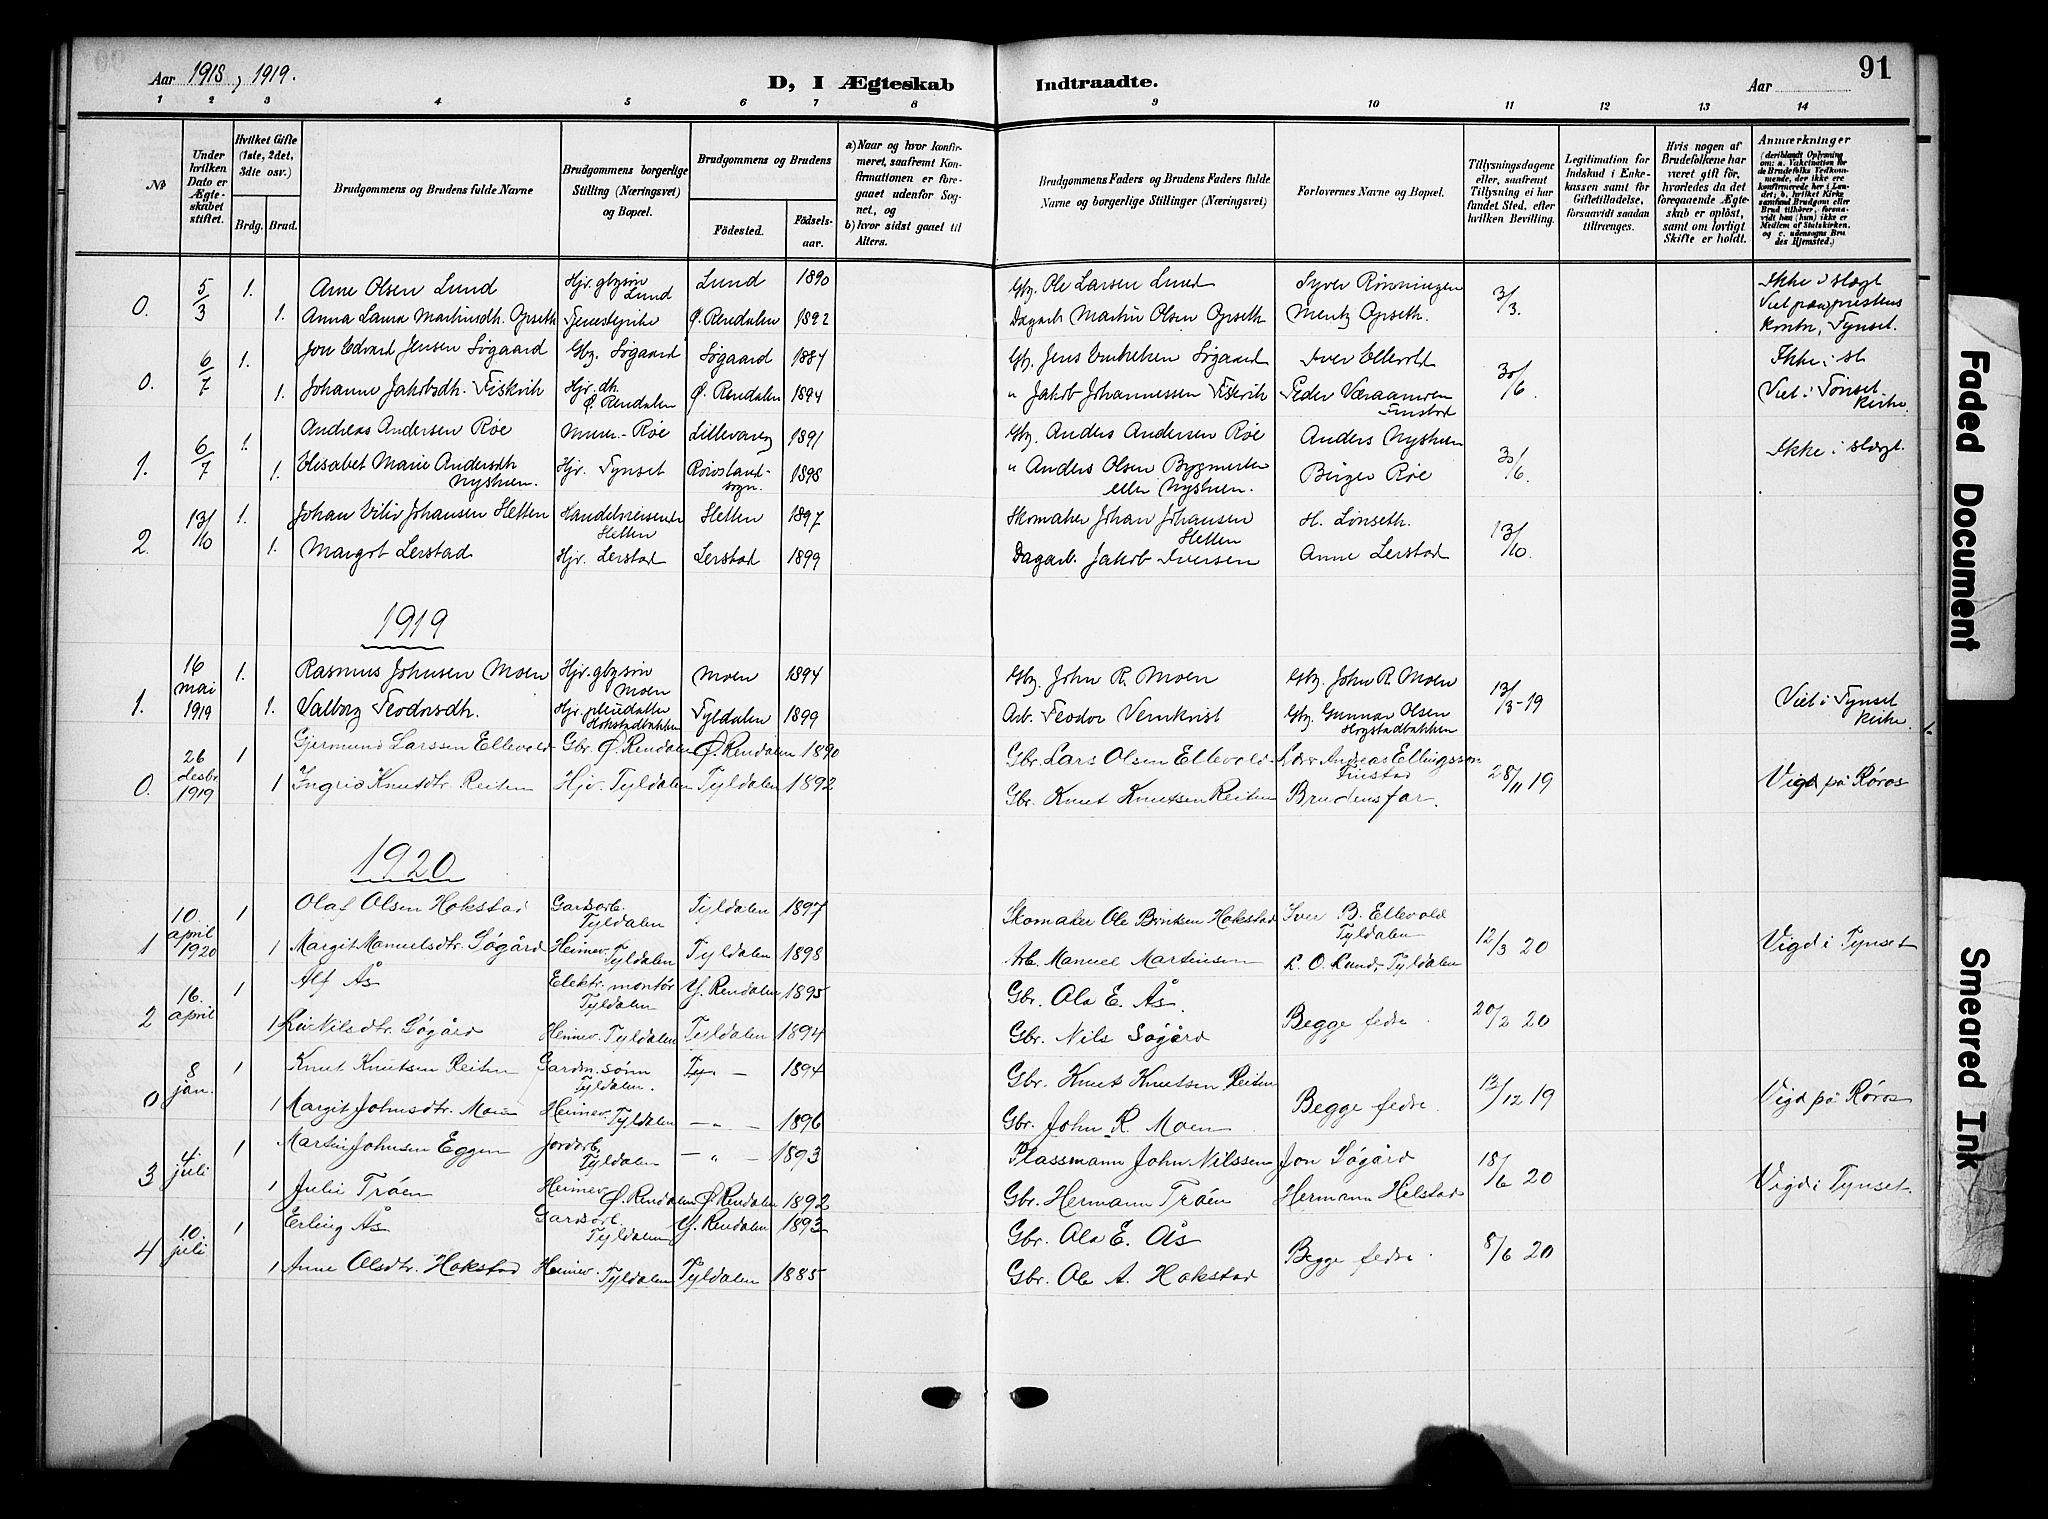 Aar 1918, 1919.
D, I Ægteskab Indtraadte.
Aar
91
1 2 3 4 5 6 7 8 9 10 11 12 13 14
No
Under hvilken Dato er Ægteskabet stiftet.
Hvilket Gifte (1ste, 2det, 3die osv.)
Brdg. Brud.
Brudgommens og Brudens fulde Navne
Brudgommens borgerlige Stilling (Næringsvei) og Bopæl.
Brudgommens og Brudens
Fødested.
Fødselsaar.
a) Naar og hvor konfirmeret, saafremt Konfirmationen er foregaaet udenfor Sognet, og
b) hvor sidst gaaet til Alters.
Brudgommens Faders og Brudens Faders fulde Navne og borgerlige Stillinger (Næringsvei)
Forlovernes Navne og Bopæl.
Tillysningsdagene eller, saafremt Tillysning ei har fundet Sted, efter hvilken Bevilling.
Legitimation for Indskud i Enkekassen samt for Giftetilladelse, forsaavidt saadan tiltrænges.
Hvis nogen af Brudefolkene har været gift før, hvorledes da det foregaaende Ægteskab er opløst, samt om lovligt Skifte er holdt.
Anmærkninger
(deriblandt Oplysning om: a. Vakcination for de Brudefolks Vedkommende, der ikke ere konfirmerede her i Landet; b. hvilket Kirkesamfund Brudgom eller Brud tilhører, forsaavidt han (hun) ikke er Medlem af Statskirken, og c. udensogns Brudes Hjemsted.)
0. 5/3 1. Arne Olsen Lund Hjv. gbrsøn Lund Lund 1890 Gbr. Ole Larsen Lund Syver Rønningen 3/3. Ikke i slægt
1. Anna Laura Martinsdh. Opseth Tjenestepike Ø. Rendalen 1892 Dagarb. Martin Olsen Opseth Mentz Opseth. Viet paa prestens kontor, Tynset.
0. 6/7 1. Jon Edvard Jensen Søgaard Gbr. Søgaard Søgaard 1884 Gbr. Jens Søgaard Iver Ellevold 30/6. Ikke i sl
1. Johanne Jakobsdh. Fiskvik Hjv. dh. Ø. Rendalen Ø. Rendalen 1894 " Jakob Johannessen Fiskvik Peder Finstad Viet i Tønset kirke.
1. 6/7 1. Andreas Andersen Røe Murer - Røe 1891 Gbr. Anders Andersen Røe Anders Nyshuen 30/6. Ikke i slægt.
1. Elisabet Marie Andersdh Nyshuen. Hjv. Tynset sogn. 1898 " Anders Olsen eller Nyshuen. Birger Røe
2. 13/10 1. Johan Johansen Hetten Handelsreisende Hetten Hetten 1897 Skomaker Johan Johansen Hetten H. Lønseth. 13/10.
1. Margot Lerstad Hjv. Lerstad Lerstad 1899 Dagarb. Jakob Iversen Anne Lerstad
1919
1. 16 mai 1919 1. Rasmus Johnsen Moen Hjv. gbrsøn Moen Moen 1894 Gbr. John R. Moen Gbr. John R. Moen 13/3-19 Viet i Tynset kirke
1. Valborg Teodorsdh. Hjv. pleiedatter Hokstadbakken Tyldalen 1899 Arb. Teodor Vernkvist Gbr. Gunnar Olsen
0. 26 desbr 1919 1 Gjermund Larssen Ellevold Gbr. Ø. Rendalen Ø. Rendalen 1890 Gbr. Lars Olsen Ellevold Andreas Ellingsson Finstad 28/11 19 Vigd på Røros
1 Ingrid Knutdtr Reiten Hjv. Tyldalen Tyldalen 1892 Gbr. Knut Knutsen Reiten Brudens far.
1920
1 10. april 1920 1 Olaf Olsen Hokstad Gardsarb. Tyldalen Tyldalen 1897 Skomaker Ole Hokstad Iver B. Ellevold Tyldalen 12/3 20 Vigd i Tynset
1 Margit Manuelsdtr Søgård Heimev. Tyldalen Tyldalen 1898 Arb. Manuel Martinsen L. O. Lund, Tyldalen
2 16. april 1 Alf Ås Elektr. montør Tyldalen Y. Rendalen 1895 Gbr. Ola E. Ås. Begge fedre. 20/2 20
1 Liv Nilsdtr. Søgård Heimev. Tyldalen Tyldalen 1894 Gbr. Nils Søgård
0 8 jan. 1 Knut Knutsen Reiten Gardm. sønn Tyldalen. Ty. - 1894 Gbr. Knut Knutsen Reiten Begge fedre. 13/12 19 Vigd på Røros
1 Margit Johnsdtr. Moen Heimev. Tyldalen - " - 1896 Gbr. John R. Moen
3 4. juli 1 Martin Johnsen Eggen Jordarb. Tyldalen - " - 1893 Plassmann John Nilssen Jon Søgård 18/6 20 Vigd i Tynset.
1 Julie Trøen Heimev Ø. Rendalen Ø. Rendalen 1892 Gbr. Hermann Trøen Hermann Helstad
4 10. juli 1 Erling Ås Gardsarb. Tyldalen Y. Rendalen 1893 Gbr. Ola E. Ås Begge fedre. 8/6 20
1 Anne Olsdtr. Hokstad Heimev. Tyldalen Tyldalen 1885 Gbr. Ole A. Hokstad
Faded Document
Smeared Ink